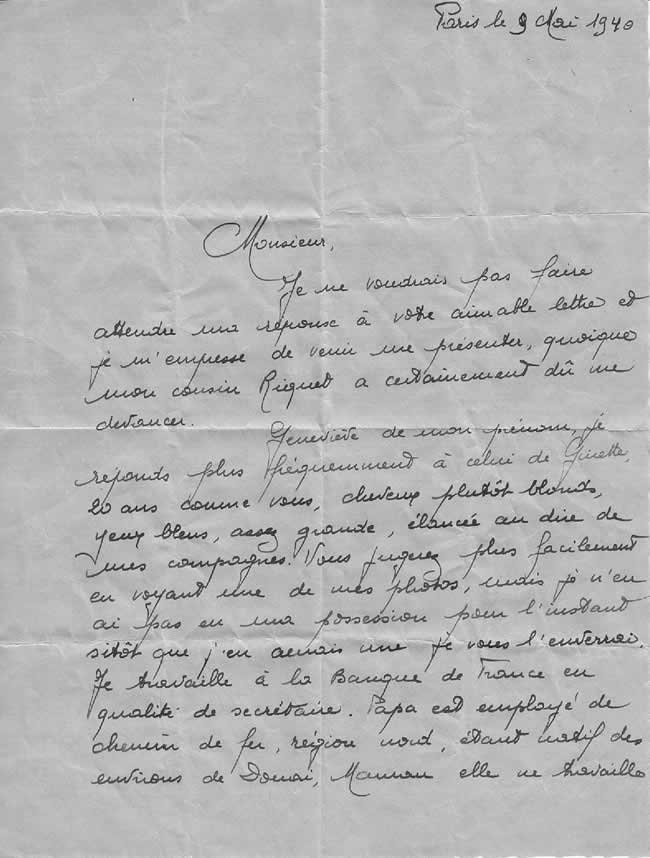 Paris le 9 Mai 1940
Monsieur,
Je ne voudrais pas faire
attendre ma réponse à votre aimable lettre et
je m'empresse de venir me présenter, quoique
mon cousin Riquet a certainement dû me
devancer.
Geneviève de mon prénom, je
réponds plus fréquemment à celui de Ginette,
20 ans comme vous, cheveux plutôt blonds,
yeux bleus, assez grande, élancée au dire de
mes compagnes. Vous jugerez plus facilement
en voyant une de mes photos, mais je n'en
ai pas en ma possession pour l'instant
sitôt que j'en aurais une je vous l'enverrai.
Je travaille à la Banque de France en
qualité de secrétaire. Papa est employé de
chemin de fer, région nord, étant natif des
environs de Douai, Maman elle ne travaille